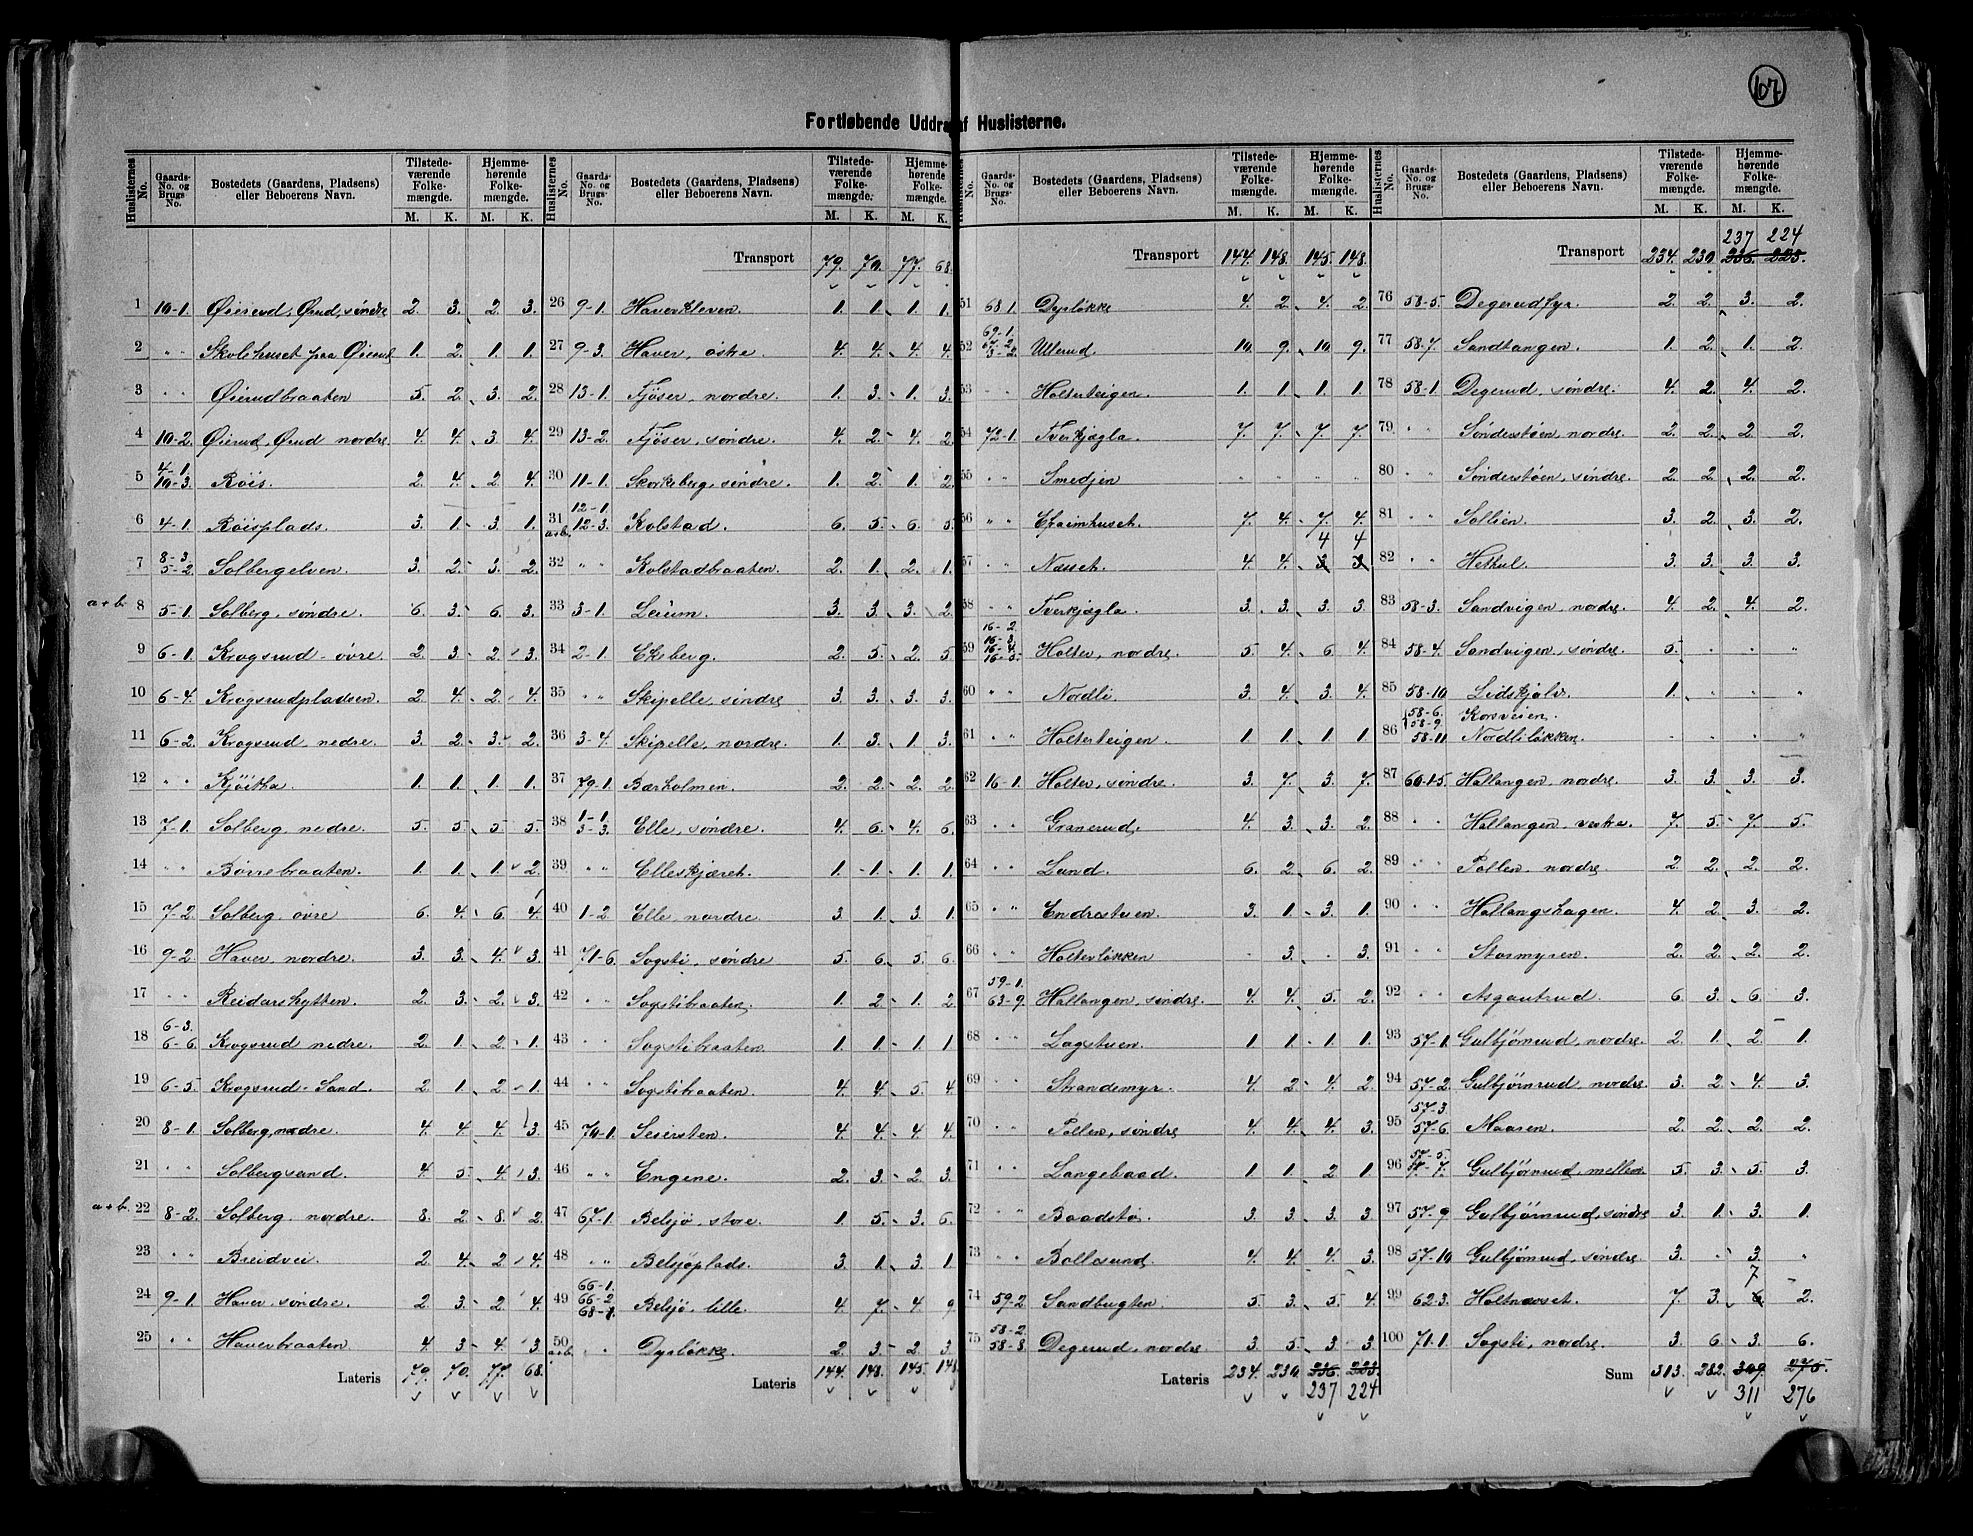 67
Fortløbende Uddrag af Huslisterne.
Huslisternes No. | Gaards-No. og Brugs-No. | Bostedets (Gaardens, Pladsens) eller Beboerens Navn. | Tilstedeværende Folkemængde. M. K. | Hjemmehørende Folkemængde. M. K.
1 10-1. Øierud, Ørud, søndre 2. 3. 2. 3.
2 " " Skolehuset paa Øierud 1. 2. 1. 1.
3 " " Øierudbraaten 5. 2. 3. 2.
4 10-2. Øierud, Ørud nordre 4. 4. 3. 4.
5 4-1. 10-3. Røis. 2. 4. 2. 4.
6 4-1. Røisplads. 3. 1. 3. 1.
7 8-3. 5-2. Solbergelven 3. 2. 3. 2.
a+b. 8 5-1. Solberg, søndre. 6. 3. 6. 3.
9 6-1. Krogsrud-øvre. 2. 3. 2. 3.
10 6-4. Krogsrudpladsen 2. 4. 2. 4.
11 6-2. Krogsrud, nedre. 3. 2. 3. 2.
12 " " Kjøitha 1. 1. 1. 1.
13 7-1. Solberg, nedre. 5. 5. 5. 5.
14 " " Børrebraaten. 1. 1. 1. 2.
15 7-2. Solberg, øvre 6. 4. 6. 4.
16 9-2. Haver, nordre. 3. 3. 4. 3.
17 " " Reidarshytten. 2. 3. 2. 3.
18 6-3. 6-6. Krogsrud nedre. 2. 1. 2. 1.
19 6-5. Krogsrud-Sand. 2. 1. 2. 1.
20 8-1. Solberg, nedre. 4. 4. 4. 3.
21 " " Solbergsand. 4. 5. 4. 3.
a+b. 22 8-2. Solberg, nordre. 8. 2. 8. 2.
23 " " Breidvei 2. 4. 2. 4.
24 9-1. Haver, søndre. 2. 3. 2. 4.
25 " " Haverbraaten 4. 3. 4. 3.
Lateris 79. 70. 77. 68.
Transport 79. 70. 77. 68.
26 9-1. Haverkleven. 1. 1. 1. 1.
27 9-3. Haver, østre. 4. 4. 4. 4.
28 13-1. Fjøser, nordre. 1. 3. 1. 3.
29 13-2. Fjøser, søndre. 4. 2. 4. 2.
30 11-1. Skorkeberg, søndre. 1. 2. 1. 2.
31 a+b. 12-1. 12-3. Kolstad. 6. 5. 6. 5.
32 " " Kolstadbraaten 2. 1. 2. 1.
33 3-1. Leium. 3. 3. 3. 2.
34 2-1. Ekeberg. 2. 5. 2. 5.
35 " " Skipelle, søndre 3. 3. 3. 3.
36 3-4. Skipelle, nordre. 1. 3. 1. 3.
37 79-1. Bærholmen. 2. 2. 2. 2.
38 1-1. 3-3. Elle, søndre. 4. 6. 4. 6.
39 " " Elleskjæret. 1. 1. 1. 1.
40 1-2. Elle, nordre 3. 1. 3. 1.
41 71-6. Sogsti, søndre 5. 6. 5. 6.
42 " " Sogstibraaten. 1. 2. 1. 2.
43 " " Sogstibraaten. 1. 1. 1. 1.
44 " " Sogstibraaten. 4. 4. 5. 4.
45 70-1. Seiersten. 4. 4. 4. 4.
46 " " Engene. 2. 3. 2. 3.
47 67-1. Belsjø, store. 1. 5. 3. 6.
48 " " Belsjøplads. 3. 1. 3. 1.
49 66-1. 66-2. Belsjø, lille. 4. 7. 4. 9
50 a+b. " " Dyrløkke 2. 3. 2. 3.
Lateris 144. 148. 145. 148.
Transport 144. 148. 145. 148.
51 68-1. Dyrløkke 4. 2. 4. 2.
52 69-1. Ullerud. 10. 9. 10. 9.
53 " " Holterteigen. 1. 1. 1. 1.
54 72-1. Tverkjægla. 7. 7. 7. 7.
55 " " Smedjen " " " "
56 " " Chaimhuset. 7. 4. 7. 4.
57 " " Næsset. 4. 4. 3 4 3 4
58 " " Tverkjægla. 3. 3. 3. 3.
59 16-2. 16-3. 16-4. 16-5. Holter, nordre. 5. 4. 6. 4.
60 " " Nordli. 3. 4. 3. 4.
61 " " Holterteigen. 1. 1. 1. 1.
62 16-1. Holter, søndre. 3. 7. 3. 7.
63 " " Granerud. 4. 3. 3. 2.
64 " " Lund. 6. 2. 6. 2.
65 " " Endrestuen. 3. 1. 3. 1.
66 " " Holterløkken " 3. " 3.
67 59-1. 63-9. Hallangen, søndre. 4. 4. 5. 2.
68 " " Lagstuen. 1. 1. 1. 1.
69 " " Strandemyr. 4. 2. 4. 2.
70 " " Pollen, søndre 4. 4. 4. 3.
71 " " Langebaad. 1. 1. 2. 1.
72 " " Baadstø. 3. 3. 3. 3.
73 " " Ballesund. 4. 4. 4. 3.
74 59-2. Sandbugten. 5. 3. 5. 4.
75 58-2. 58-8. Degerud, nordre. 3. 5. 3. 3.
Lateris 234. 230. 236. 223.
237 224
237 224
Transport 234. 230. 236. 223.
76 58-5. Degerudfyr. 2. 2. 3. 2.
77 58-7. Sandtangen. 1. 2. 1. 2.
78 58-1. Degerud, søndre. 4. 2. 4. 2.
79 " " Sønderstøen, nordre. 2. 2. 2. 2.
80 " " Sønderstøen, søndre. 2. 2. 2. 2.
81 " " Sollien. 3. 2. 3. 2.
82 " " Helkul. 3. 3. 3. 3.
83 58-3. Sandvigen, nordre. 4. 2. 4. 2.
84 58-4. Sandvigen, søndre. 5. " " "
85 58-10 Lidskjalv. 1. " " "
86 58-6. 58-9. Korsveien.
58-11 Nordliløkken. " " " "
87 60-1.5. Hallangen, nordre. 3. 3. 3. 3.
88 " " Hallangen, vestre. 7. 5. 7. 5.
89 " " Pollen, nordre 2. 2. 2. 2.
90 " " Hallangshagen. 4. 2. 3. 2.
91 " " Stormyren. 2. 2. 2. 2.
92 " " Asgautrud. 6. 3. 6. 3.
93 57-1. Gulbjørnrud, nordre. 2. 1. 2. 1.
94 57-2. Gulbjørnrud, nordre. 3. 2. 4. 3.
95 57-3. 57-6. Maaren. 2. 2. 2. 2.
96 57-5. 57-7. Gulbjørnrud, mellem 5. 3. 5. 3.
97 57-9. Gulbjørnrud, søndre 3. 1. 3. 1.
98 57-10 Gulbjørnrud, søndre. 3. " 3. "
99 62-3. Holtnæsset. 7. 3. 6 7 2.
100 71-1. Sogsti, nordre. 3. 6. 3. 6.
Sum 313. 282. 309. 275.
311 276